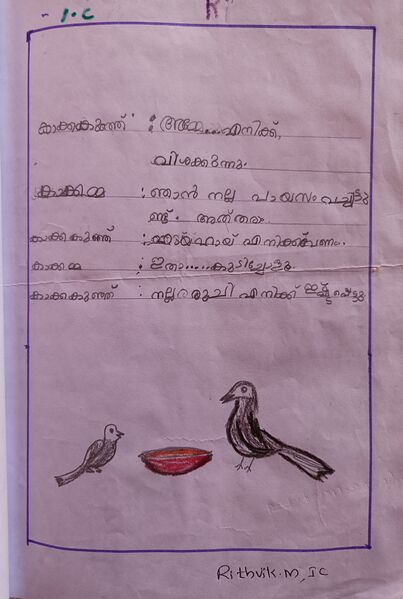 1.C
കാക്കകുഞ്ഞ് : അമ്മേ....എനിക്ക്,
വിശക്കുന്നു.
കാക്കമ്മ : ഞാൻ നല്ല പായസം വച്ചിട്ടു
ണ്ട്. അത് തരാം.
കാക്കകുഞ്ഞ് : ഹായ് എനിക്ക് വേണം.
കാക്കമ്മ : ഇതാ......കുടിച്ചോട്ടു.
കാക്കകുഞ്ഞ് : നല്ല രുചി എനിക്ക് ഇഷ്ട്ടപ്പെട്ടു
Rithvik.M, IC